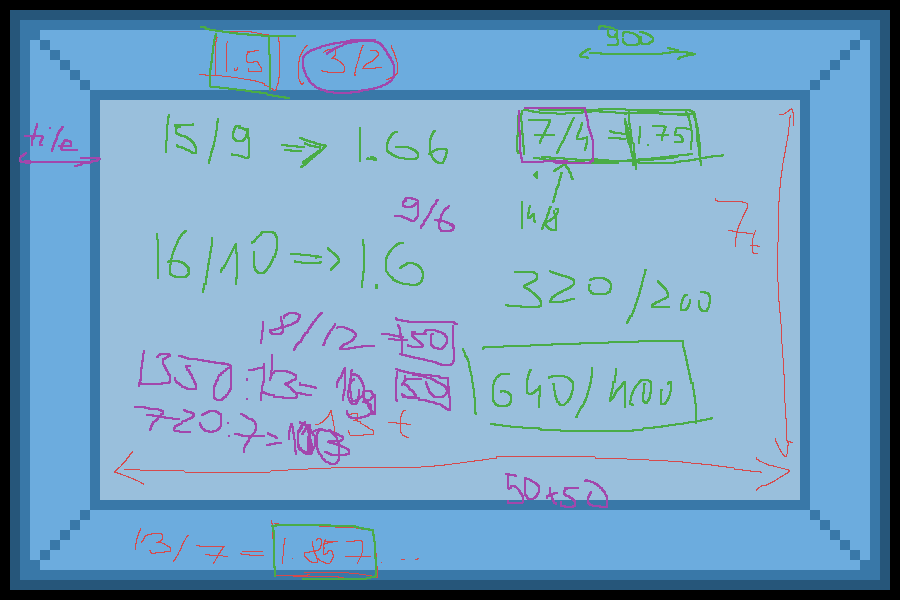 1.5 (3/2)
900
tile
15/9 => 1.66
7/4 = 1.75
14/8
9/6
7t
16/10 => 1.6
320/200
18/12 = 50
1350:13= 103 50
640/400
720:7=103
13 t
50x50
13/7 = 1.857...